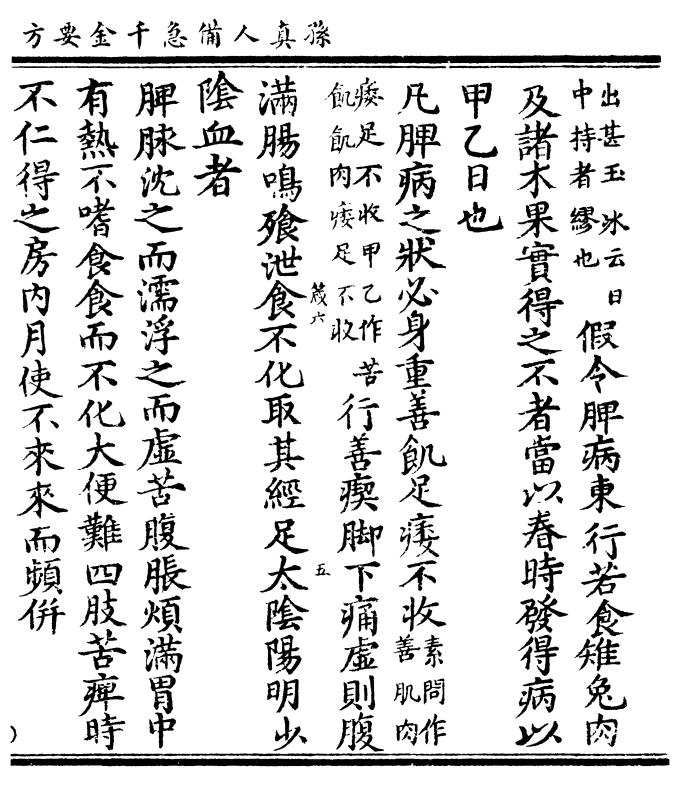 孫真人備急千金要方
出甚玉氷云日
中持者繆也
假令脾病東行若食雉兔肉
及諸木果實得之不者當以春時發得病以
甲乙日也
凡脾病之狀必身重善飢足痿不收
素問作
善肌肉
痿足不收甲乙作苦
飢飢肉痿足不收
行善瘈脚下痛虛則腹
滿腸鳴飱泄食不化取其經足太陰陽明少
陰血者
脾脉沈之而濡浮之而虛苦腹脹煩滿胃中
有熱不嗜食食而不化大便難四肢苦痺時
不仁得之房內月使不來來而頻併
箴六
五